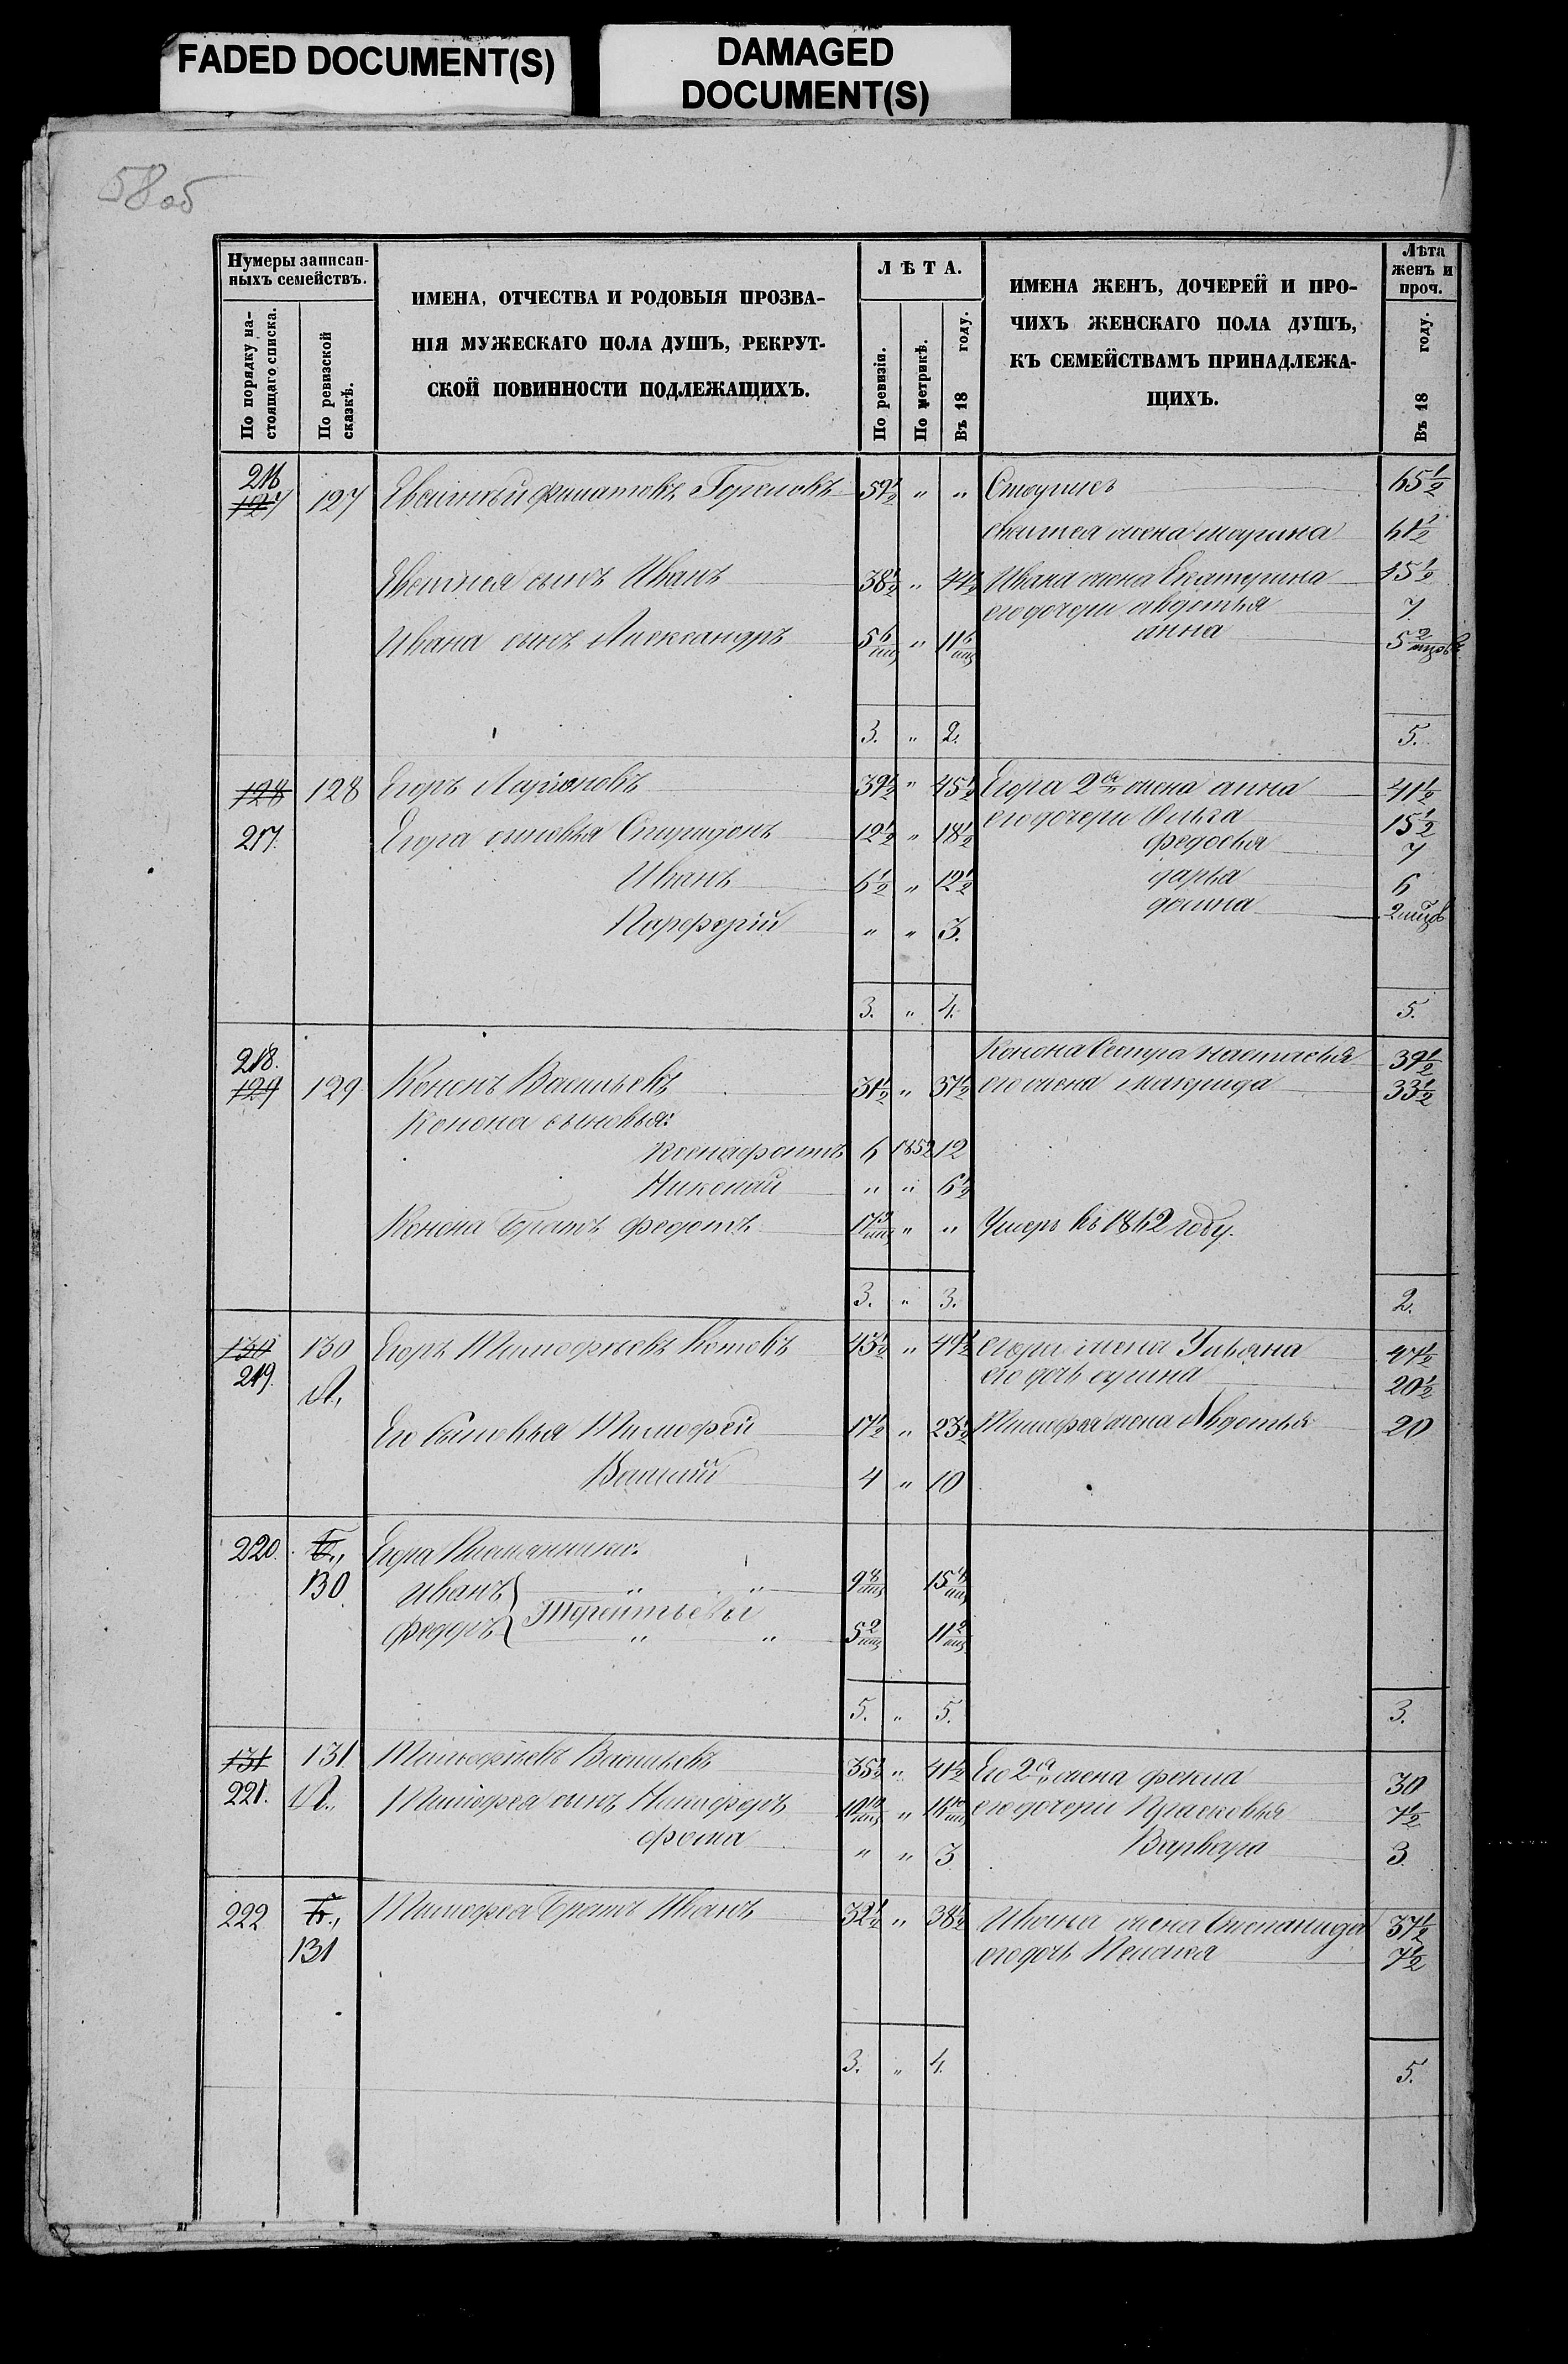 FADED DOCUMENT(S)
DAMAGED
DOCUMENT(S)
58 об
Нумеры записан-
ныхъ семействъ.
По порядку на-
стоящаго списка.
По ревизской
сказкѣ.
ИМЕНА, ОТЧЕСТВА И РОДОВЫЯ ПРОЗВА-
НІЯ МУЖЕСКАГО ПОЛА ДУШЪ, РЕКРУТ-
СКОЙ ПОВИННОСТИ ПОДЛЕЖАЩИХЪ.
ЛѢТА.
По ревизіи.
По метрикѣ.
Въ 18 году.
ИМЕНА ЖЕНЪ, ДОЧЕРЕЙ И ПРО-
ЧИХЪ ЖЕНСКАГО ПОЛА ДУШЪ,
КЪ СЕМЕЙСТВАМЪ ПРИНАДЛЕЖА-
ЩИХЪ.
Лѣта
женъ и
проч.
Въ 18 году.
216 127 127 Филатовъ 59½ " " 65½
жена Марина 61½
сынъ Иванъ 38½ " 44½ Ивана жена Екатерина 45½
его дочери Авдотья 7
Ивана сынъ Александръ 5 6/мц " 11 6/мц Анна 5 2/мцовъ
3. " 2. 5.
128 128 Егоръ Ларіоновъ 39½ " 45½ Егора 2я жена Анна 41½
217. Егора сыновья Спиридонъ 12½ " 18½ его дочери 15½
Федосья 7
Иванъ 6½ " 12½ Дарья 6
Домна 2 мцов
Парферій " " 3.
3. " 4. 5.
218. Конона Сестра Настасья 39½
129 129 Кононъ Васильевъ 31½ " 37½ его жена Макрида 33½
Конона сыновья:
Ксенафонтъ 6 1852 12
Николай " " 6½
Конона Братъ Федотъ " " Умеръ въ 1862 году.
3. " 3. 2.
130 130 Егоръ Тимофѣевъ Котовъ 43½ " 49½ Егора жена Ульяна 47½
219. А., его дочь 20½
Его Сыновья Тимофей 17½ " 23½ Тимофея жена Авдотья 20
Василій 4 " 10
220. Б., Егора Племянники:
130 Иванъ " " 9 8/мц 15 8/мц
Терентьевы
Федоръ " " 5 2/мц 11 2/мц
5. " 5. 3.
131 131 Тимофѣевъ Васильевъ 35½ " 41½ Его 2я жена Фекла 30
221. А., Тимофея сынъ Никифоръ 10 10/мц " 16 10/мц его дочери Прасковья 7½
Фома " " 3 Варвара 3
222 Б., Тимофея Братъ Иванъ 32½ " 38½ Ивана жена Степанида 37½
131 его дочь Пелагея 7½
3. " 4. 5.